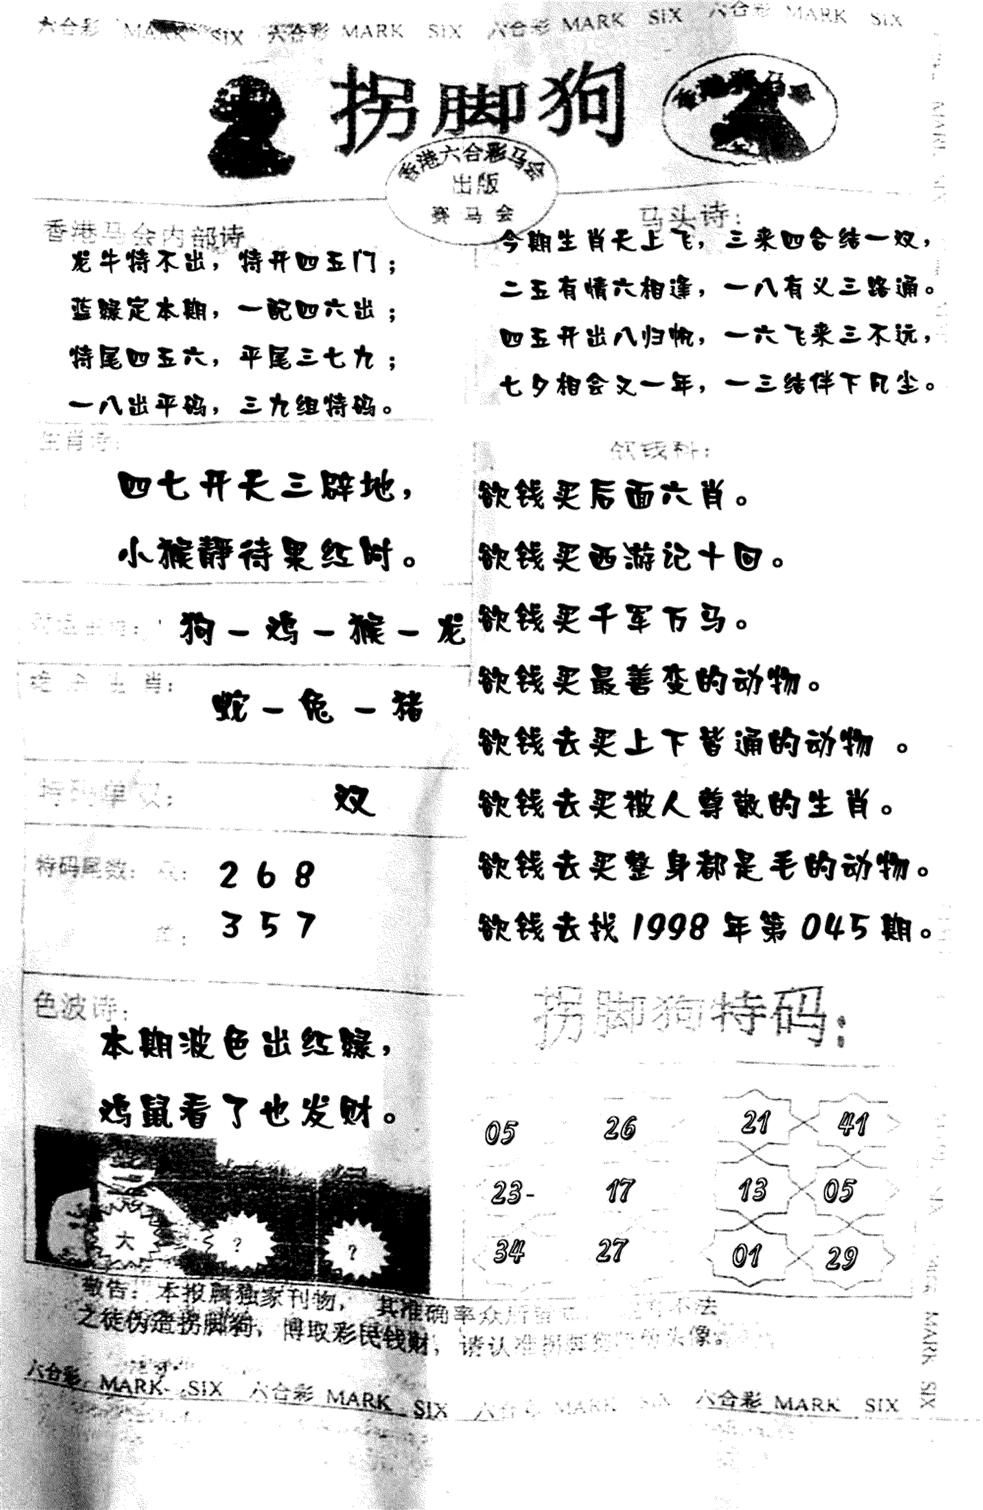 六合彩 MARK SIX 六合彩 MARK SIX 六合彩 MARK SIX 六合彩 MARK SIX
拐脚狗
香港赛马会
香港六合彩马会
出版
赛马会
香港马会内部诗
龙牛特不出，特开四五门；
蓝绿定本期，一配四六出；
特尾四五六，平尾三七九；
一八出平码，三九组特码。
马头诗：
今期生肖天上飞，三来四合结一双，
二五有情六相逢，一八有义三路通。
四五开出八归帆，一六飞来三不远，
七夕相会又一年，一三结伴下凡尘。
生肖诗：
四七开天三辟地，
小猴静待果红时。
狗－鸡－猴－龙
绝杀生肖：
蛇－兔－猪
特码单双：
双
特码尾数：双：268
单：357
色波诗：
本期波色出红绿，
鸡鼠看了也发财。
大 ？ ？
欲钱料：
欲钱买后面六肖。
欲钱买西游记十回。
欲钱买千军万马。
欲钱买最善变的动物。
欲钱去买上下皆通的动物 。
欲钱去买被人尊敬的生肖。
欲钱去买整身都是毛的动物。
欲钱去找1998年第045期。
拐脚狗特码：
05 26 21 41
23- 17 13 05
34 27 01 29
敬告：本报属独家刊物，其准确率众所
之徒伪造拐脚狗，博取彩民钱财，请认准拐脚狗
六合彩 MARK SIX 六合彩 MARK SIX 六合彩 MARK SIX 六合彩 MARK SIX
MARK SIX